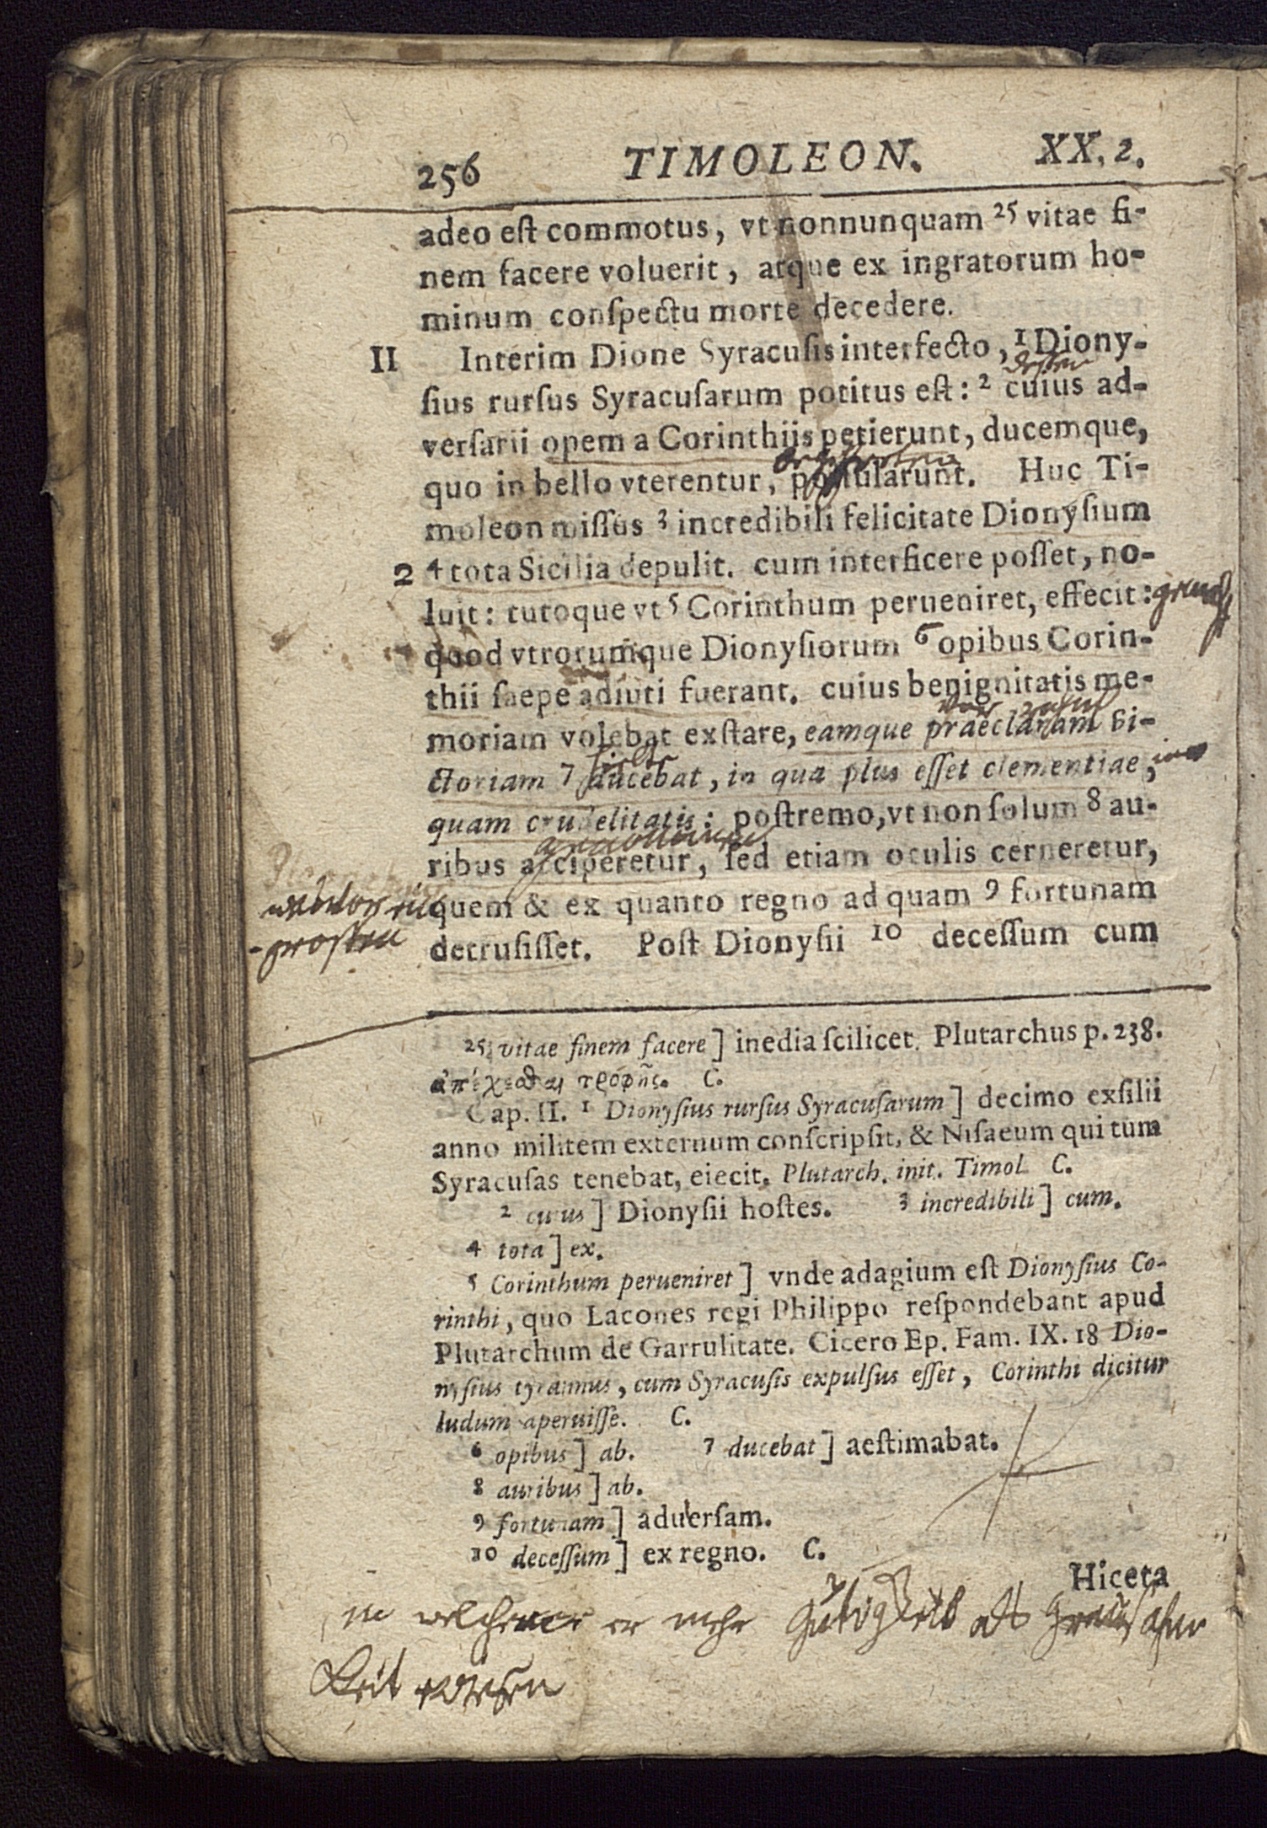 256 TIMOLEON. XX. 2.
adeo eſt commotus, vt nonnunquam 25 vitae fi-
nem facere voluerit, atque ex ingratorum ho-
minum conſpectu morte decedere.
II Interim Dione Syracuſis interfecto, 1 Diony-
ſius rurſus Syracuſarum potitus eſt: 2 cuius ad-
verſarii opem a Corinthiis petierunt, ducemque,
quo in bello vterentur, poſtularunt. Huc Ti-
moleon miſſus 3 incredibili felicitate Dionyſium
2 4 tota Sicilia depulit. cum interficere poſſet, no-
luit: tutoque vt 5 Corinthum perueniret, effecit:
quod vtrorumque Dionyſiorum 6 opibus Corin-
thii ſaepe adiuti fuerant. cuius benignitatis me-
moriam volebat exſtare, eamque praeclaram vi-
ctoriam 7 ducebat, in qua plus eſſet clementiae,
quam crudelitatis: poſtremo, vt non ſolum 8 au-
ribus acciperetur, ſed etiam oculis cerneretur,
quem & ex quanto regno ad quam 9 fortunam
detruſiſſet. Poſt Dionyſii 10 deceſſum cum
25 vitae finem facere] inedia ſcilicet. Plutarchus p. 238.
ἀπέχεσθαι τροφῆς. C.
Cap. II. 1 Dionyſius rurſus Syracuſarum] decimo exſilii
anno militem externum conſcripſit, & Niſaeum qui tum
Syracuſas tenebat, eiecit. Plutarch. init. Timol. C.
2 cuius] Dionyſii hoſtes. 3 incredibili] cum.
4 tota] ex.
5 Corinthum perueniret] vnde adagium eſt Dionyſius Co-
rinthi, quo Lacones regi Philippo reſpondebant apud
Plutarchum de Garrulitate. Cicero Ep. Fam. IX. 18 Dio-
nyſius tyrannus, cum Syracuſis expulſus eſſet, Corinthi dicitur
ludum aperuiſſe. C.
6 opibus] ab. 7 ducebat] aeſtimabat.
8 auribus] ab.
9 fortunam] aduerſam.
10 deceſſum] ex regno. C.
Hiceta
in welcher er mehr Gütigkeit als Grauſahm
keit